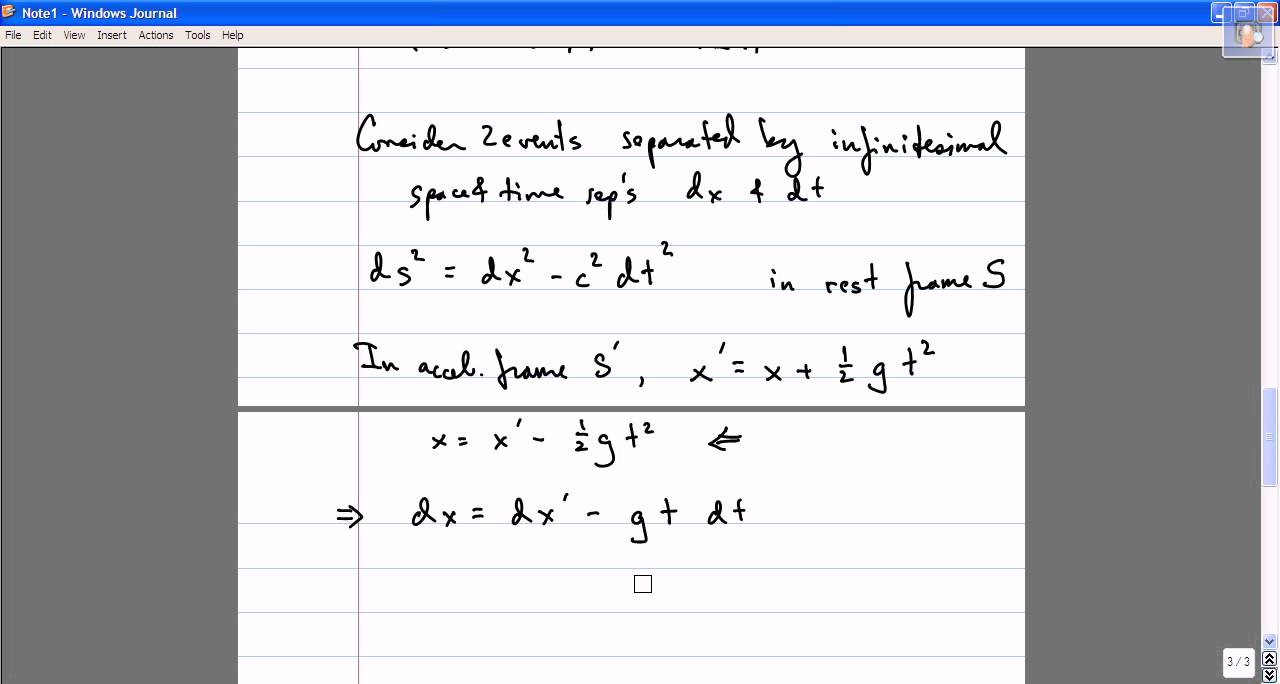 Note1 - Windows Journal
File Edit View Insert Actions Tools Help
Consider 2 events separated by infinitesimal
space & time sep's dx & dt
ds² = dx² - c² dt² in rest frame S
In accel. frame S', x' = x + ½ g t²
x = x' - ½ g t² ⇐
⇒ dx = dx' - g t dt
3 / 3